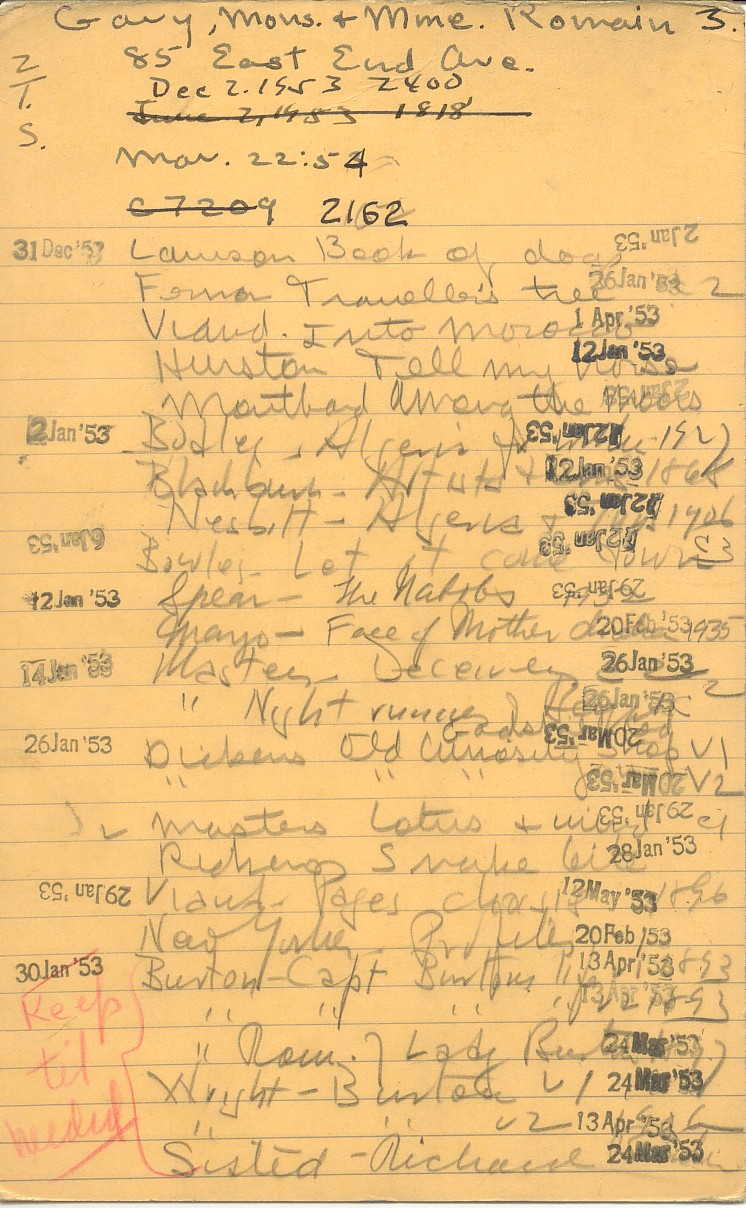 Gary, Mons. & Mme. Romain 3.
2/T. 85 East End Ave.
Dec 2. 1953 2400
June 2, 1953 1818
S.
Mar. 22:54
C7209 2162
31 Dec '52 Lawson Book of dogs 2 Jan '53
Fermor Traveller's tree 26 Jan '53 2
Viaud. Into Morocco 1 Apr '53
Hurston Tell my horse 12 Jan '53
Montbard Among the Moors
2 Jan '53 Bodley - Algeria 12 Jan '53 1927
Blackburn - Artists & 12 Jan '53 1868
Nesbitt - Algeria & 12 Jan '53 1906
6 Jan '53 Bowles Let it come down 12 Jan '53
12 Jan '53 Spear - The Nabobs 29 Jan '53
Mayo - Face of Mother 20 Feb '53 1935
14 Jan '53 Masters Deceivers 26 Jan '53
" Nightrunners 26 Jan '53 2
26 Jan '53 Dickens Old Curiosity Shop V1 20 Mar '53
" " " V2 20 Mar '53
Masters Lotus & wind 29 Jan '53
Snake bite 28 Jan '53
29 Jan '53 Viaud - Pages 12 May '53 1896
New Yorker - Profiles 20 Feb '53
30 Jan '53 Burton - Capt Burton's 13 Apr '53 1893
" " " 13 Apr '53 1893
Keep
" Rom. of Lady Burton 24 Mar '53
til
Wright - Burton V1 24 Mar '53
needed
" " V2 13 Apr '53 1906
Sisted - Richard 24 Mar '53